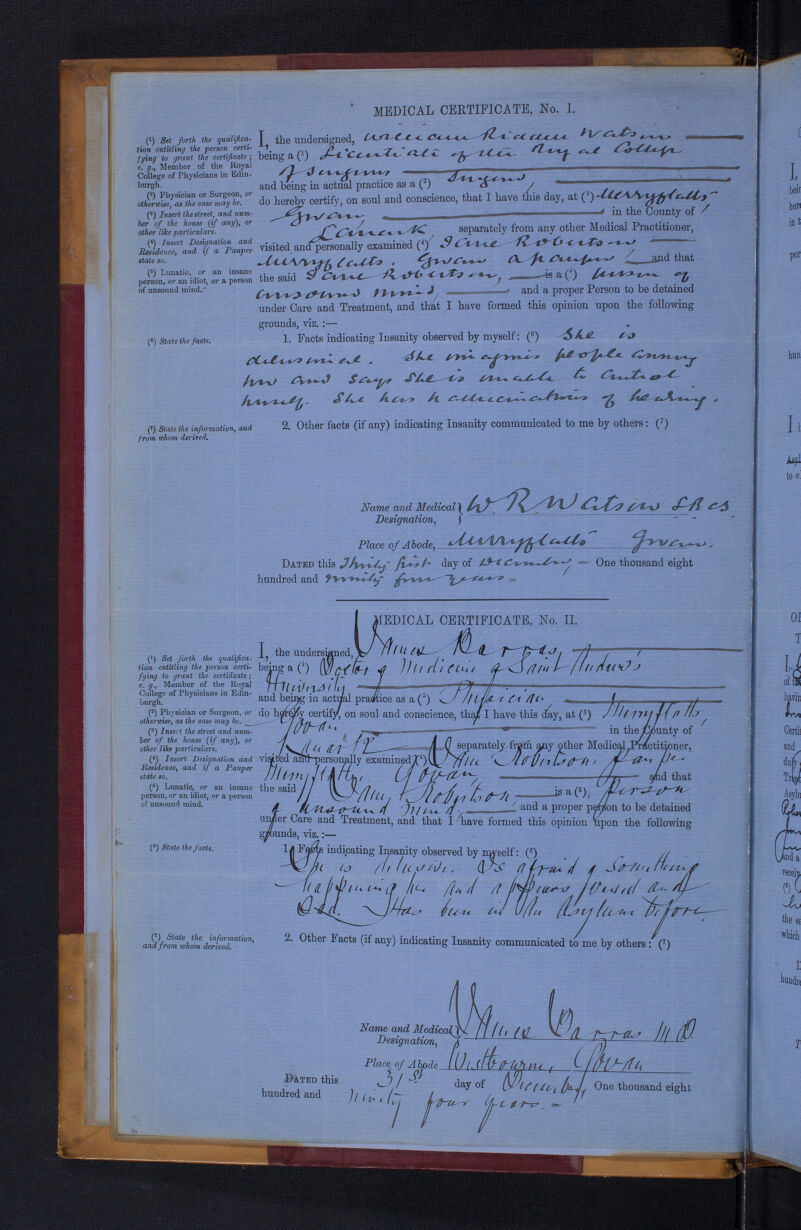 MEDICAL CERTIFICATE, No. I.
(¹) Set forth the qualifica-
tion entitling the person certi-
fying to grant the certificate;
e. g., Member of the Royal
College of Physicians in Edin-
burgh.
(²) Physician or Surgeon, or
otherwise, as the case may be.
(³) Insert the street, and num-
ber of the house (if any), or
other like particulars.
(⁴) Insert Designation and
Residence, and if a Pauper
state so.
(⁵) Lunatic, or an insane
person, or an idiot, or a person
of unsound mind."
(⁶) State the facts.
(⁷) State the information, and
from whom derived.
I, the undersigned, William Riddell Watson
being a (¹) Licentiate of the Royal College
of Surgeons
and being in actual practice as a (²) Surgeon,
do hereby certify, on soul and conscience, that I have this day, at (³) Merryflatts
Govan, in the County of
Lanark, separately from any other Medical Practitioner,
visited and personally examined (⁴) Jane Robertson
Merryflatts, Govan a pauper, and that
the said Jane Robertson, is a (⁵) person of
unsound mind, and a proper Person to be detained
under Care and Treatment, and that I have formed this opinion upon the following
grounds, viz.:—
1. Facts indicating Insanity observed by myself: (⁶) She is
delusional. She imagines people annoy
her and says she is unable to control
herself. She has hallucinations of hearing.
2. Other facts (if any) indicating Insanity communicated to me by others: (⁷)
Name and Medical Designation, W. R. Watson LRCS
Place of Abode, Merryflatts Govan.
DATED this Thirty first day of December, One thousand eight
hundred and ninety four years
MEDICAL CERTIFICATE, No. II.
(¹) Set forth the qualifica-
tion entitling the person certi-
fying to grant the certificate;
e. g., Member of the Royal
College of Physicians in Edin-
burgh.
(²) Physician or Surgeon, or
otherwise, as the case may be.
(³) Insert the street and num-
ber of the house (if any), or
other like particulars.
(⁴) Insert Designation and
Residence, and if a Pauper
state so,
(⁵) Lunatic, or an insane
person, or an idiot, or a person
of unsound mind.
(⁶) State the facts.
(⁷) State the information,
and from whom derived.
I, the undersigned, James Barras,
being a (¹) Doctor of Medicine of Saint Andrew's
University
and being in actual practice as a (²) Physician
do hereby certify, on soul and conscience, that I have this day, at (³) Merryflatts,
Govan in the County of
Lanark separately from any other Medical Practitioner,
visited and personally examined (⁴) Jane Robertson, Pauper
Merryflatts, Govan, and that
the said Jane Robertson, is a (⁵), Person
of unsound mind, and a proper person to be detained
under Care and Treatment, and that I have formed this opinion upon the following
grounds, viz.:—
1. Facts indicating Insanity observed by myself: (⁶)
She is delusive. Is afraid of something
happening her and appears and
Sad. Has been in an Asylum before
2. Other Facts (if any) indicating Insanity communicated to me by others: (⁷)
Name and Medical Designation, James Barras M.D.
Place of Abode Westbourne, Govan
DATED this 31st day of December, One thousand eight
hundred and ninety four years.